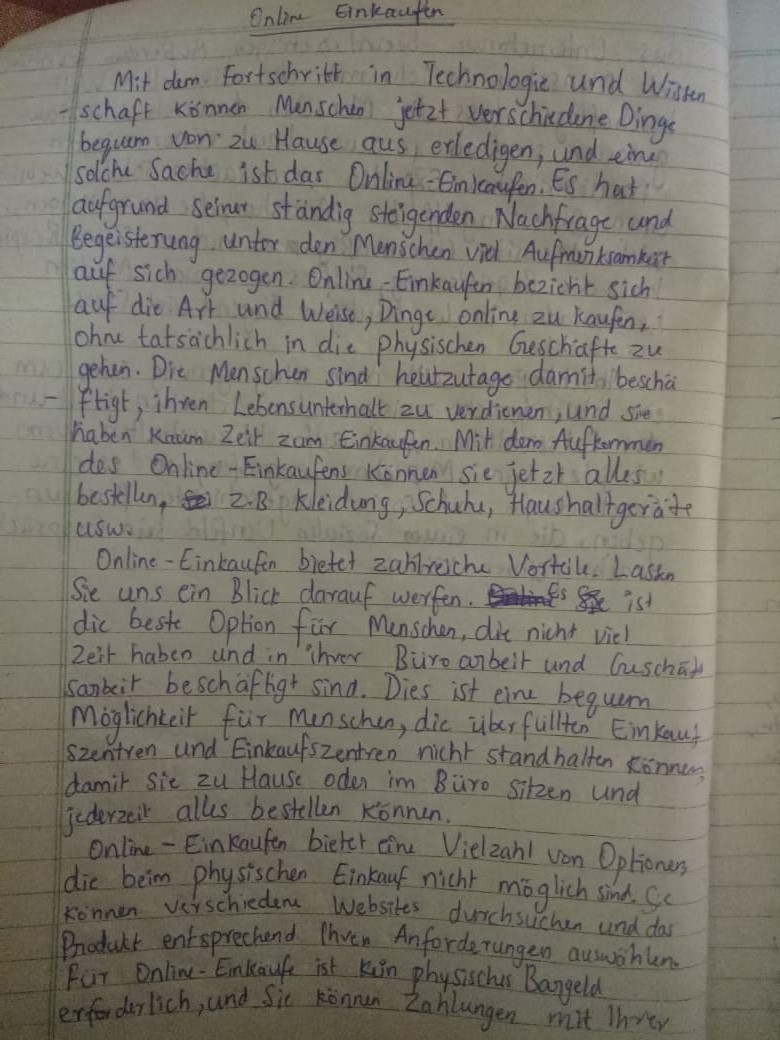 Online Einkaufen
Mit dem Fortschritt in Technologie und Wissen
-schaft können Menschen jetzt verschiedene Dinge
bequem von zu Hause aus erledigen, und eine
solche Sache ist das Online-Einkaufen. Es hat
aufgrund seiner ständig steigenden Nachfrage und
Begeisterung unter den Menschen viel Aufmerksamkeit
auf sich gezogen. Online-Einkaufen bezieht sich
auf die Art und Weise, Dinge online zu kaufen,
ohne tatsächlich in die physischen Geschäfte zu
gehen. Die Menschen sind heutzutage damit beschä
-ftigt, ihren Lebensunterhalt zu verdienen, und sie
haben kaum Zeit zum Einkaufen. Mit dem Aufkommen
des Online-Einkaufens können sie jetzt alles
bestellen, z.B Kleidung, Schuhe, Haushaltgeräte
usw.
Online-Einkaufen bietet zahlreiche Vorteile. Lassen
Sie uns ein Blick darauf werfen. Es ist
die beste Option für Menschen, die nicht viel
Zeit haben und in ihrer Büroarbeit und Geschäft
sarbeit beschäftigt sind. Dies ist eine bequem
Möglichkeit für Menschen, die überfüllten Einkauf
szentren und Einkaufszentren nicht standhalten können,
damit sie zu Hause oder im Büro sitzen und
jederzeit alles bestellen können.
Online-Einkaufen bietet eine Vielzahl von Optionen,
die beim physischen Einkauf nicht möglich sind. Sie
können verschiedene Websites durchsuchen und das
Produkt entsprechend Ihren Anforderungen auswählen.
Für Online-Einkaufe ist kein physisches Bargeld
erforderlich, und Sie können Zahlungen mit Ihrer